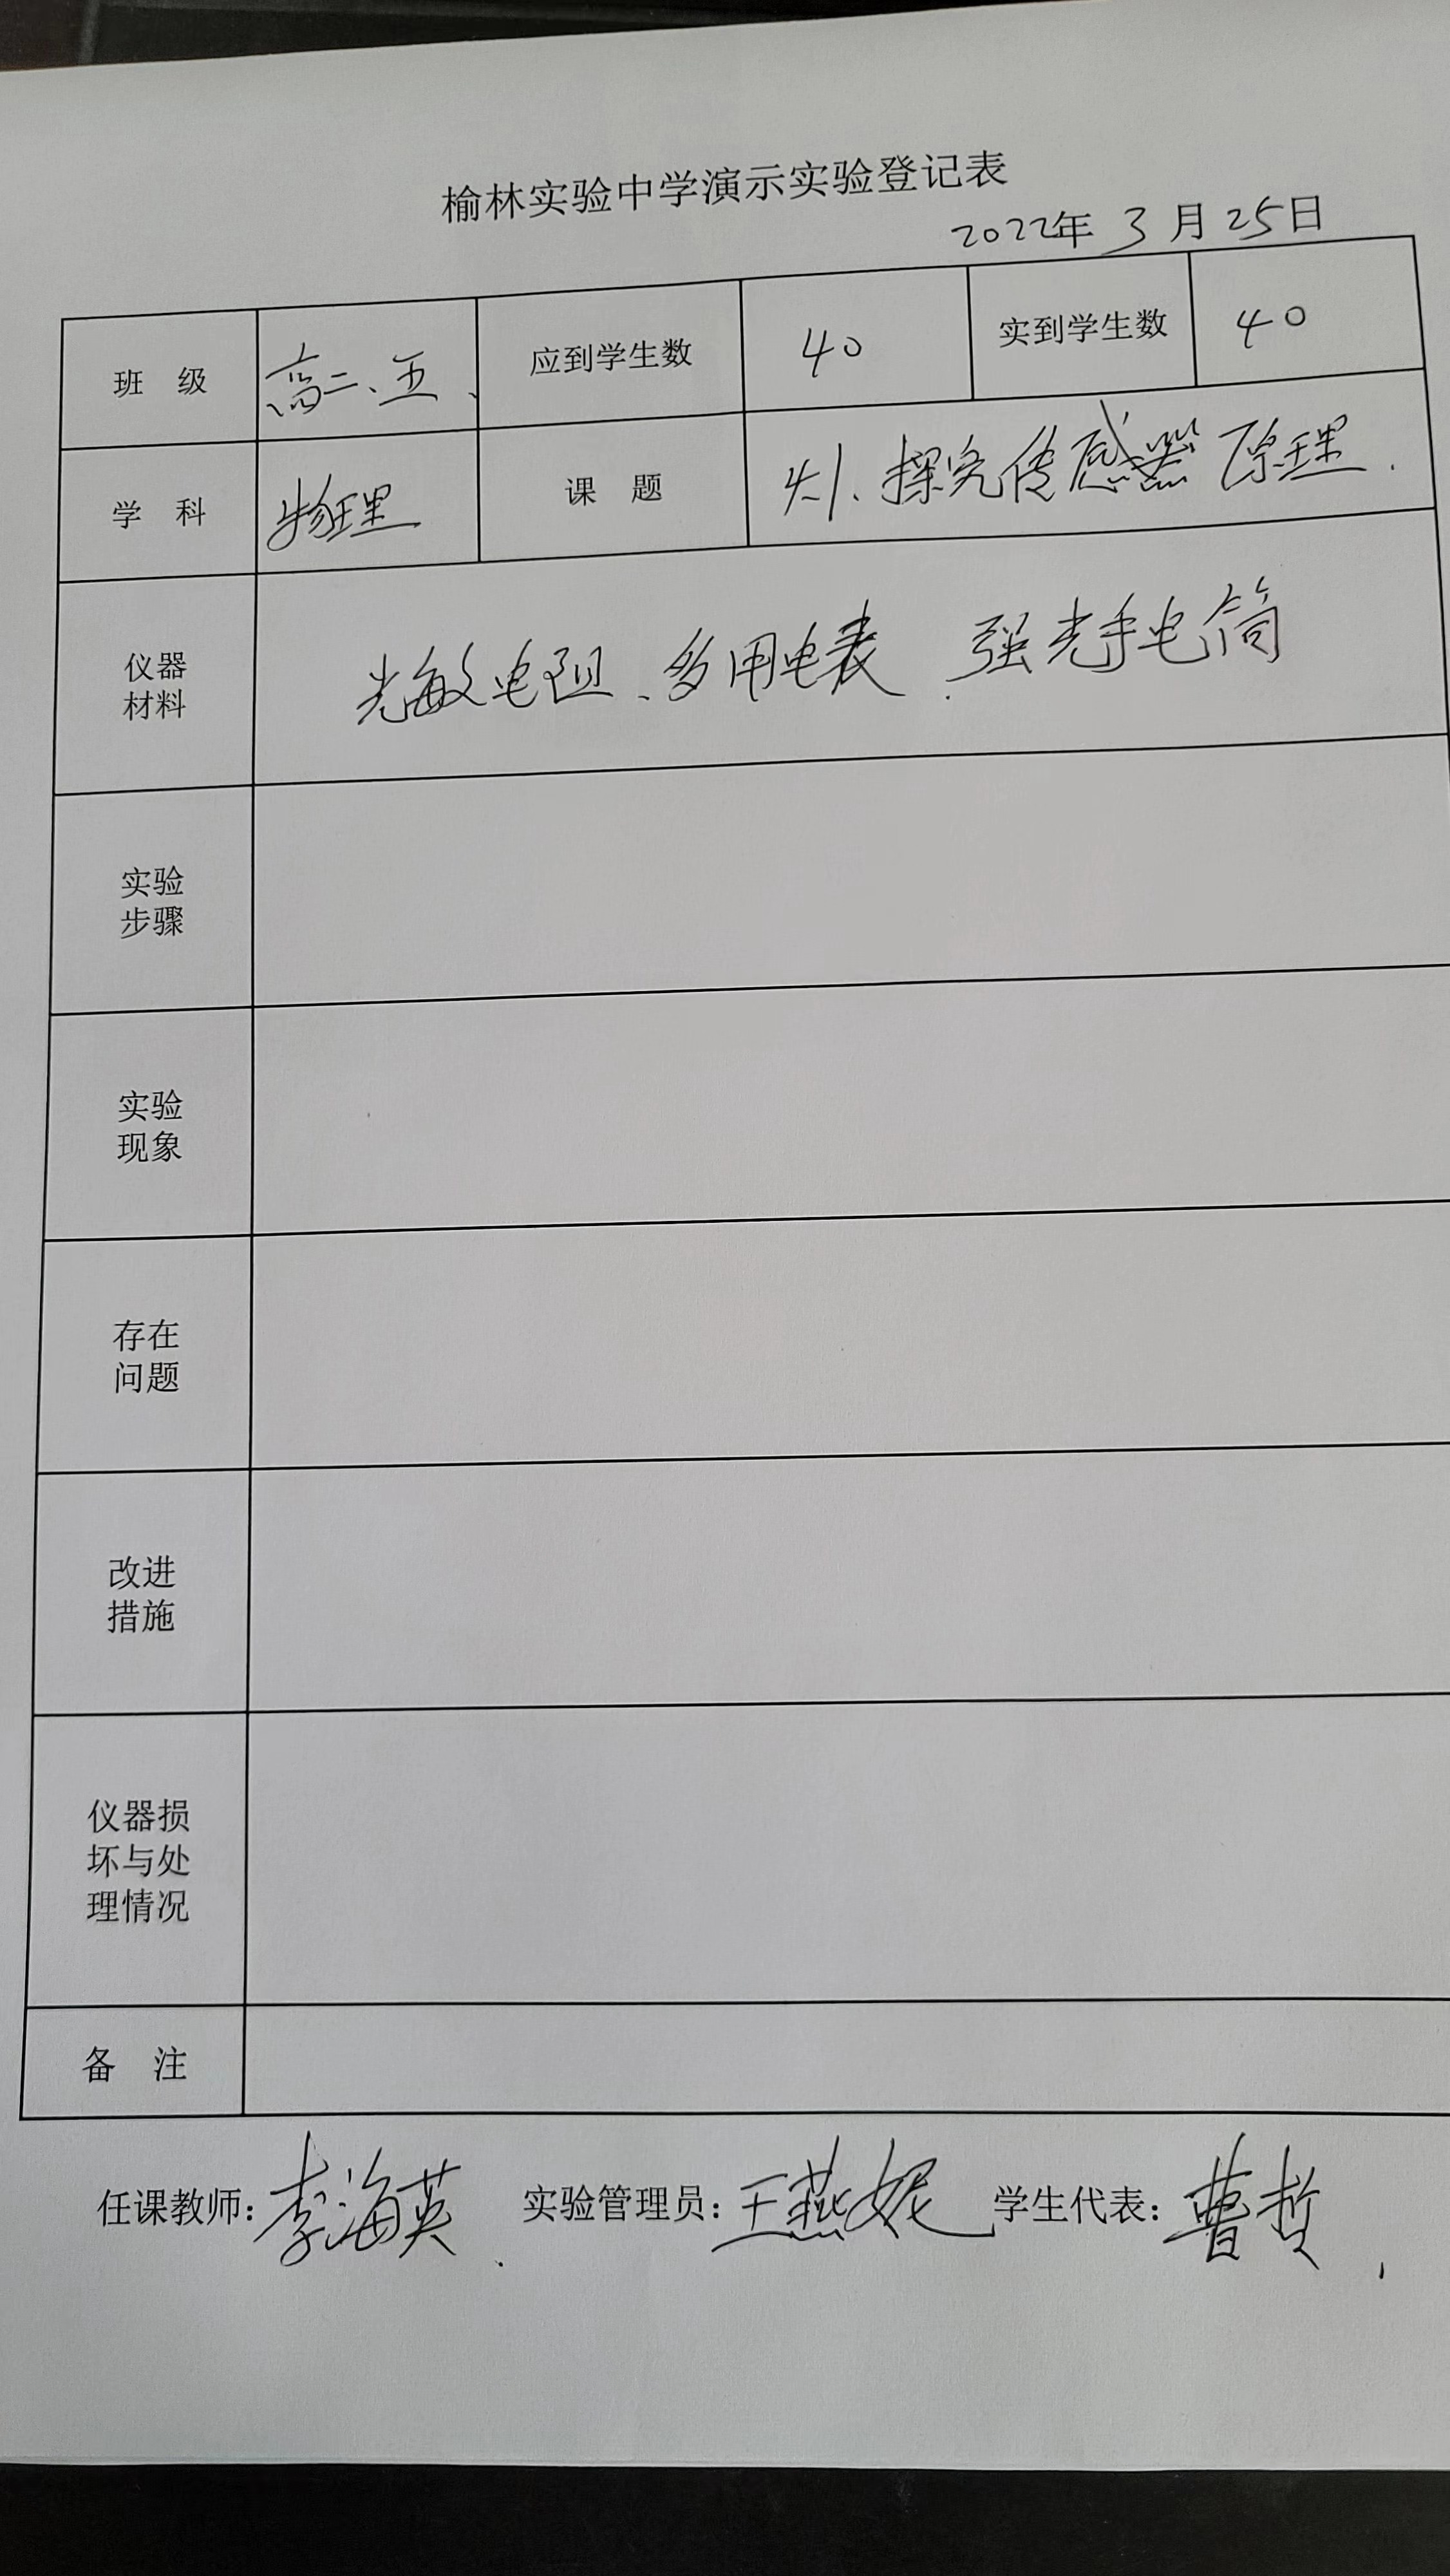 榆林实验中学演示实验登记表
2022年 3 月 25日
班 级 高二、五、 应到学生数 40 实到学生数 40
学 科 物理 课 题 探究传感器原理.
仪器
材料 光敏电阻、多用电表、强光手电筒
实验
步骤
实验
现象
存在
问题
改进
措施
仪器损
坏与处
理情况
备 注
任课教师:李海英. 实验管理员:王燕妮 学生代表:曹哲.